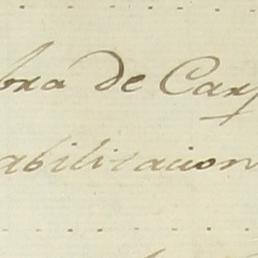 bra de Car
abilitacion